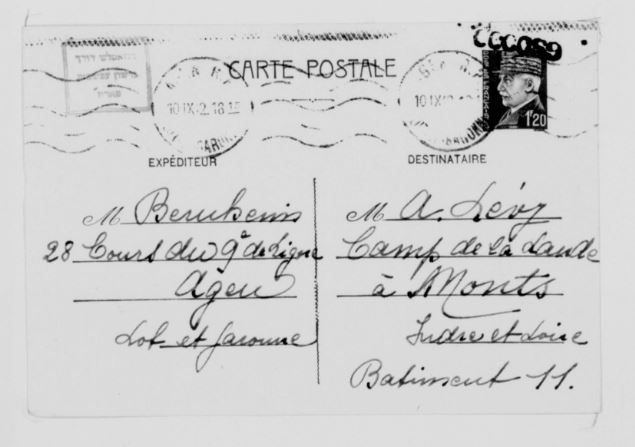 CARTE POSTALE
10 IX 42. 18 15
1ᶠ20
EXPÉDITEUR
M Beruhenis
28 Cours du 9ᵉ de Ligne
Agen
Lot et Garonne
DESTINATAIRE
M A. Lévy
Camp de la Lande
à Monts
Indre et Loire
Batiment 11.